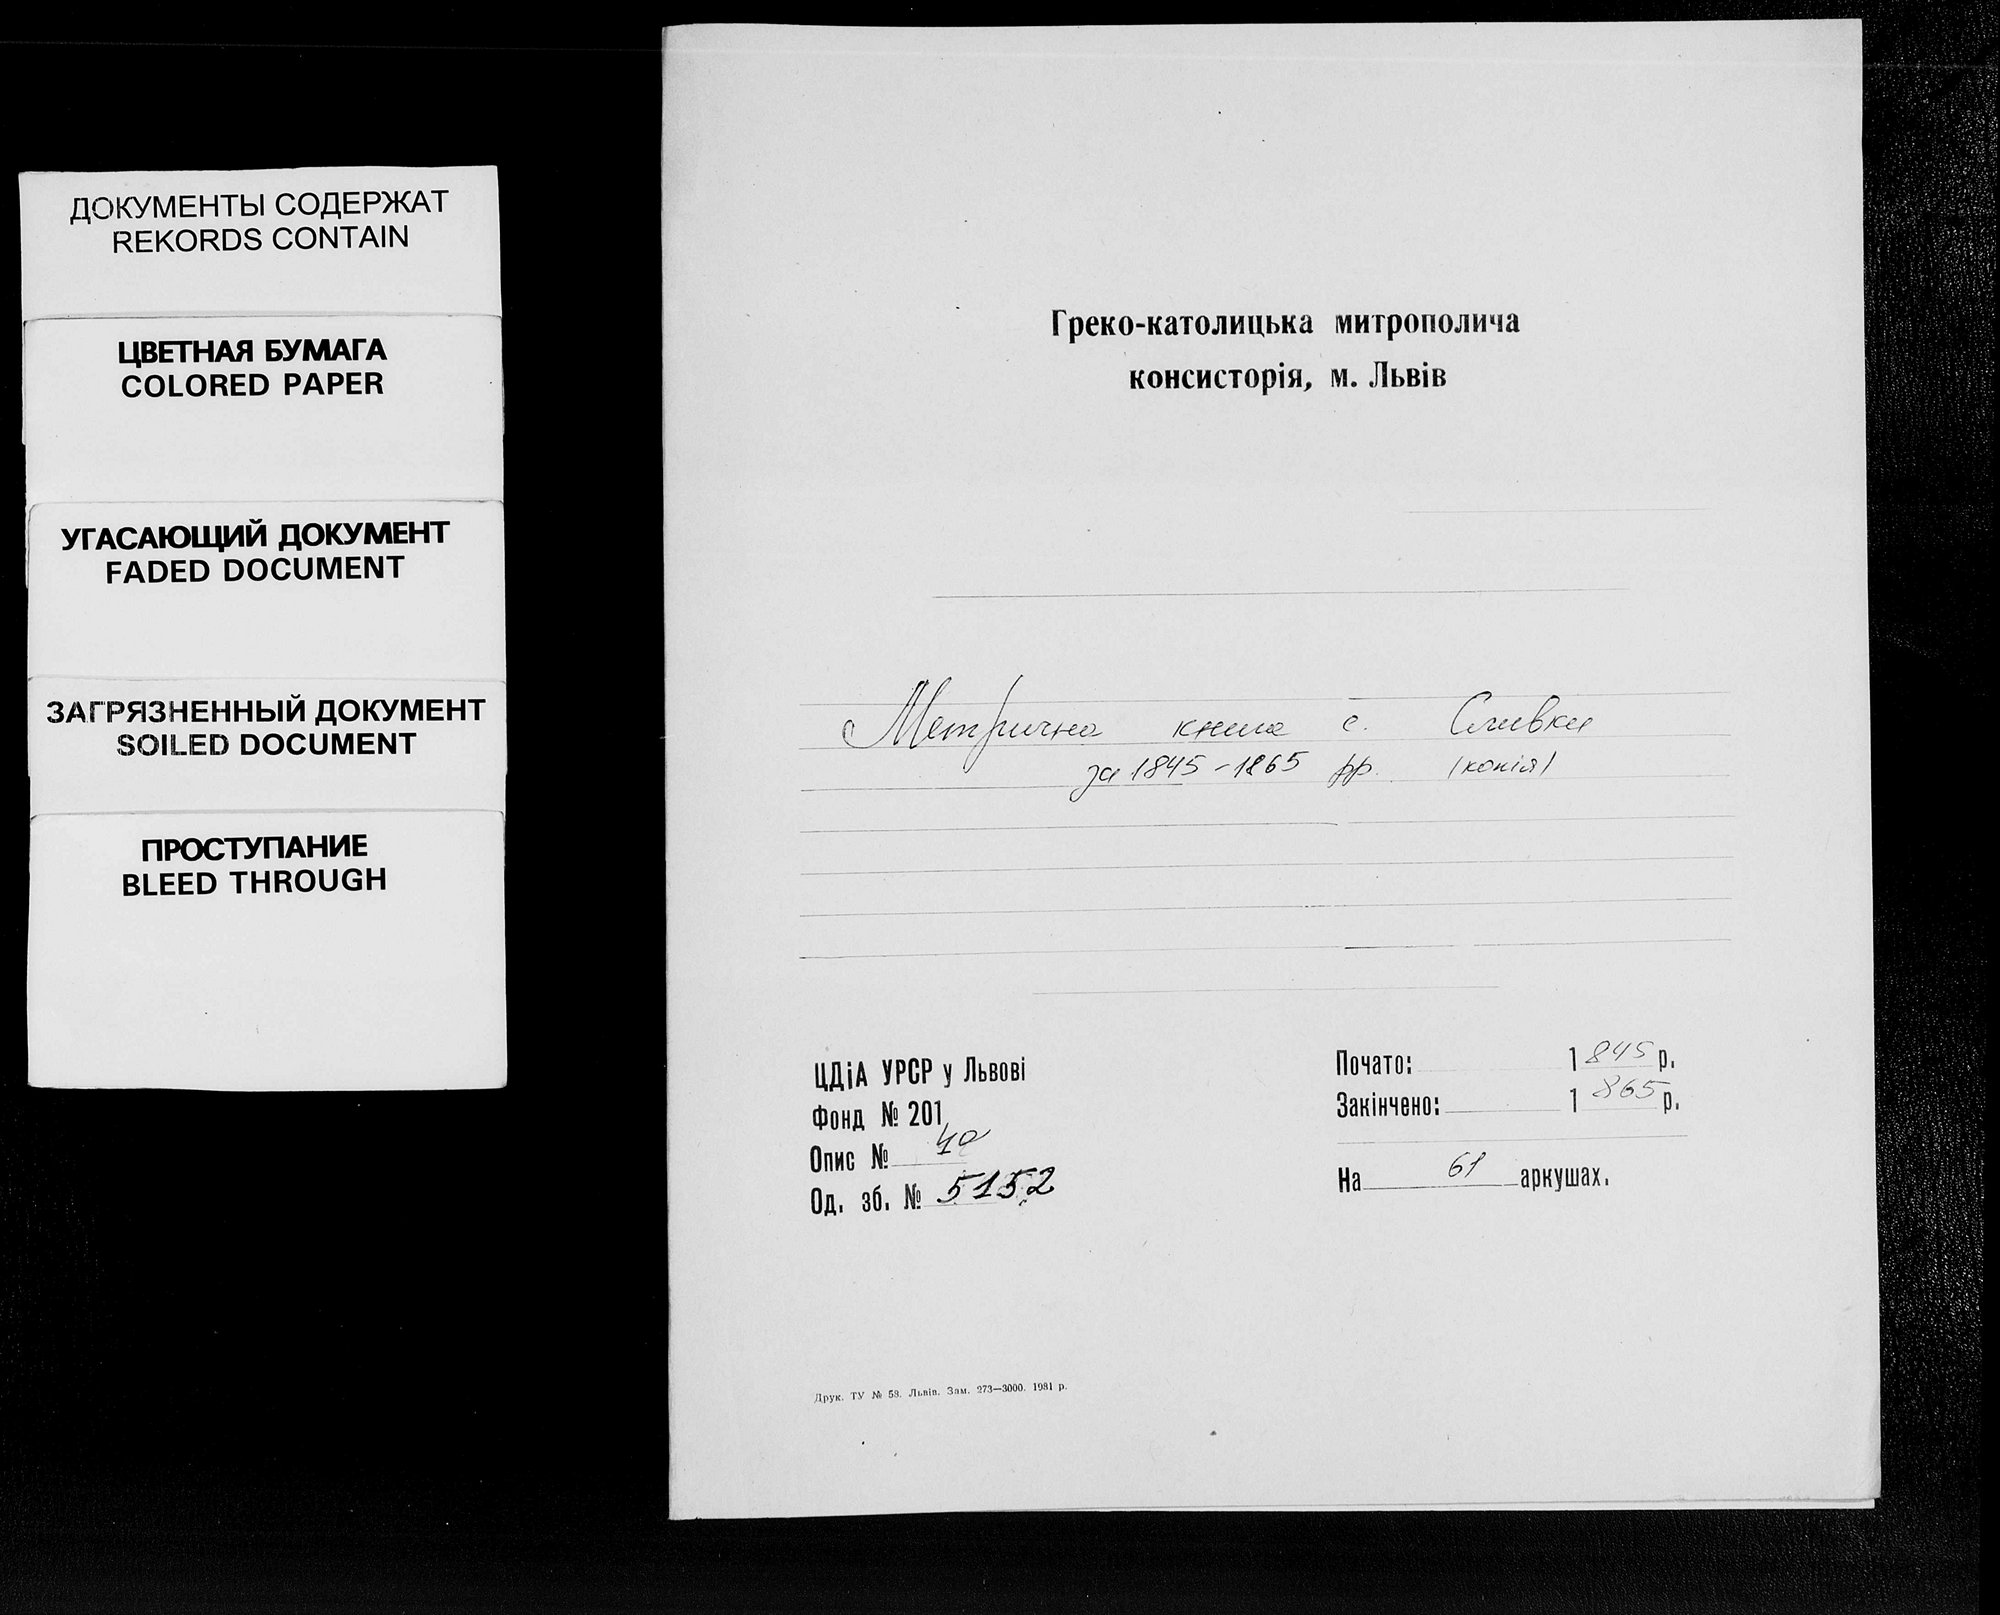 ДОКУМЕНТЫ СОДЕРЖАТ
REKORDS CONTAIN
ЦВЕТНАЯ БУМАГА
COLORED PAPER
УГАСАЮЩИЙ ДОКУМЕНТ
FADED DOCUMENT
ЗАГРЯЗНЕННЫЙ ДОКУМЕНТ
SOILED DOCUMENT
ПРОСТУПАНИЕ
BLEED THROUGH
Греко-католицька митрополича
консисторія, м. Львів
Метрична книга с. Сливки
за 1845-1865 рр. (копія)
ЦДіА УРСР у Львові
Фонд № 201
Опис № 4а
Од. зб. № 5152
Почато: 1845 р.
Закінчено: 1865 р.
На 61 аркушах.
Друк. ТУ № 58. Львів. Зам. 273—3000. 1981 р.